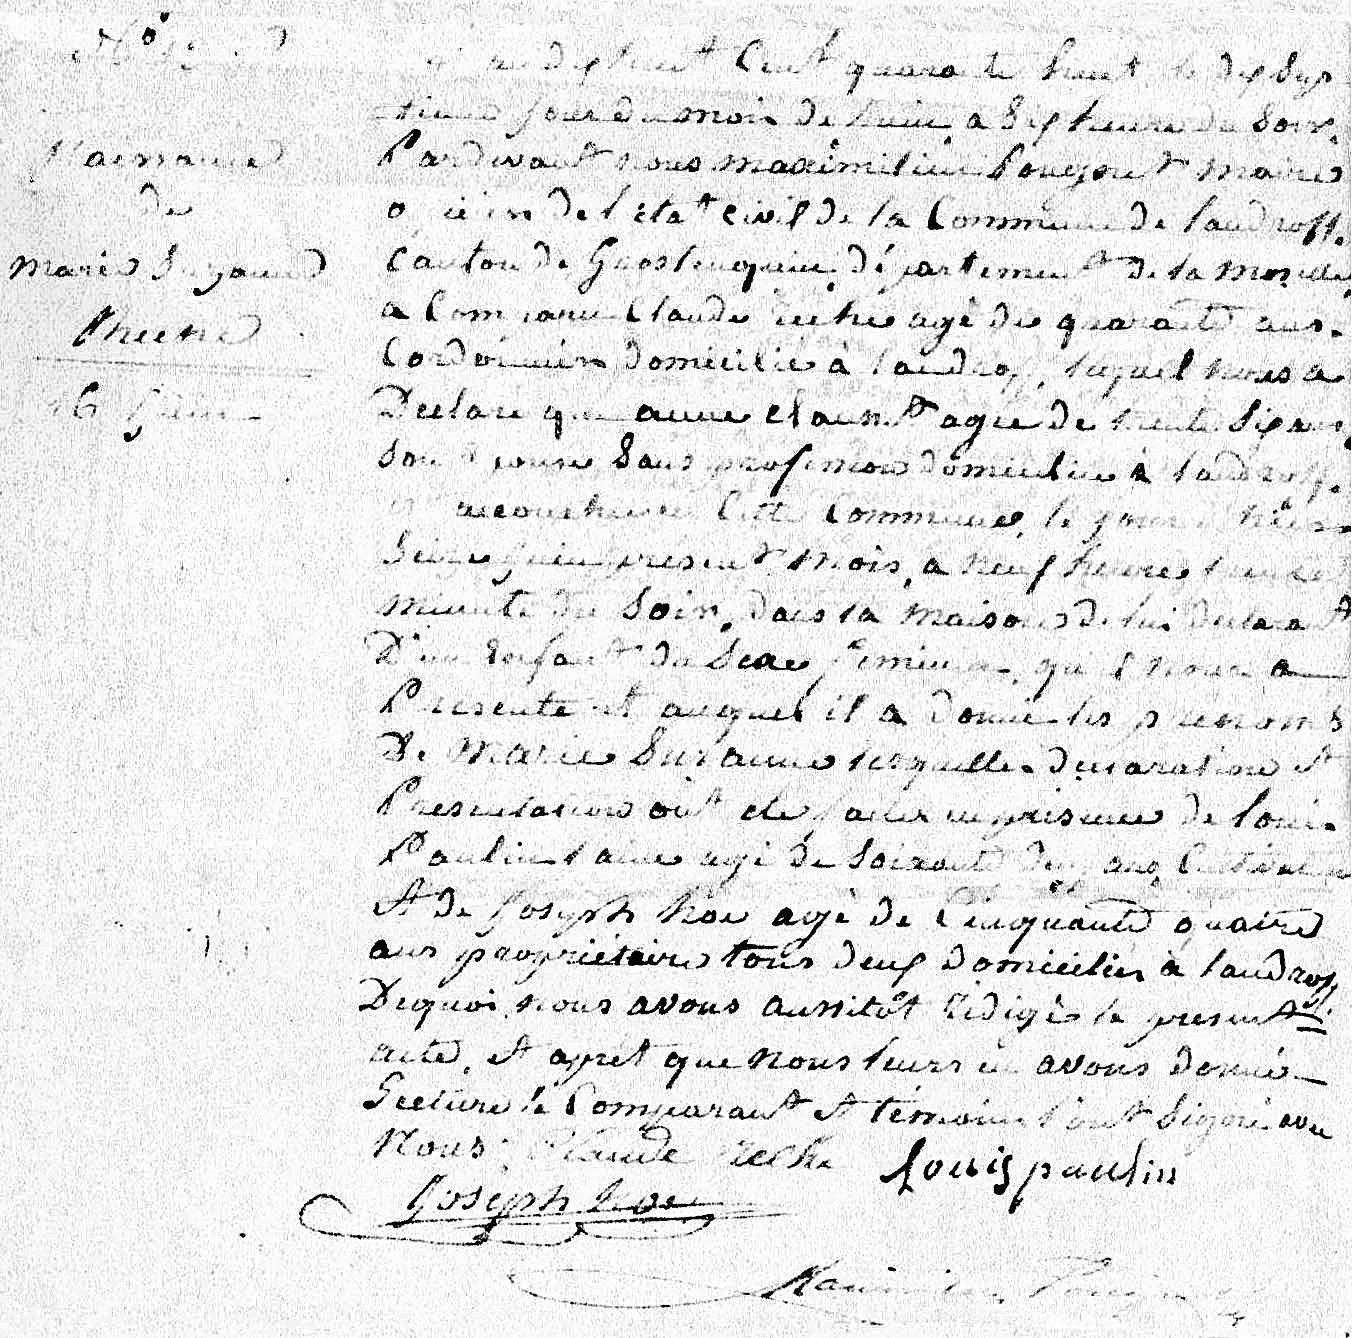 Naissance
de
Marie Suzanne
16 Juin
dix huit Cent quarante huit le dix Sep
tieme jour du mois de Juin, a Six heure du Soir.
Pardevant nous maximilien Pougnet Maire
officier de l'état civil de la Commune de Landroff.
Canton de Grostenquin, département de la Moselle,
a Comparu Claude reche agé de quarante ans.
Cordonnier domicilié à Landroff, lequel nous a
Declaré que anne agée de trente Six ans
Son Epouse Sans profession domiciliée à Landroff.
accouchée en Cette Commune, le jour d'hier
Seize Juin present Mois, a neuf heure trente
minute du Soir, dans la Maison de lui declarant
D'un Enfant du Sexe feminin, qu'il nous a
Presenté et auquel il a donné les prenoms
De Marie Suzanne lesquelles declaration et
Presentation ont été faites en présence de Louis
Paulin l'ainé agé de Soixante deux ans, Cultivateur
Et de Joseph Noe agé de Cinquante quatre
ans propriétaire tous deux domiciliés à Landroff.
Dequoi nous avons aussitôt rédigé le present
acte, et apret que nous leurs en avons donné
Lecture le Comparant et témoins l'ont Signé avec
Nous. Claude reche Louis paulin
Joseph Noe
Maximilien Pougnet